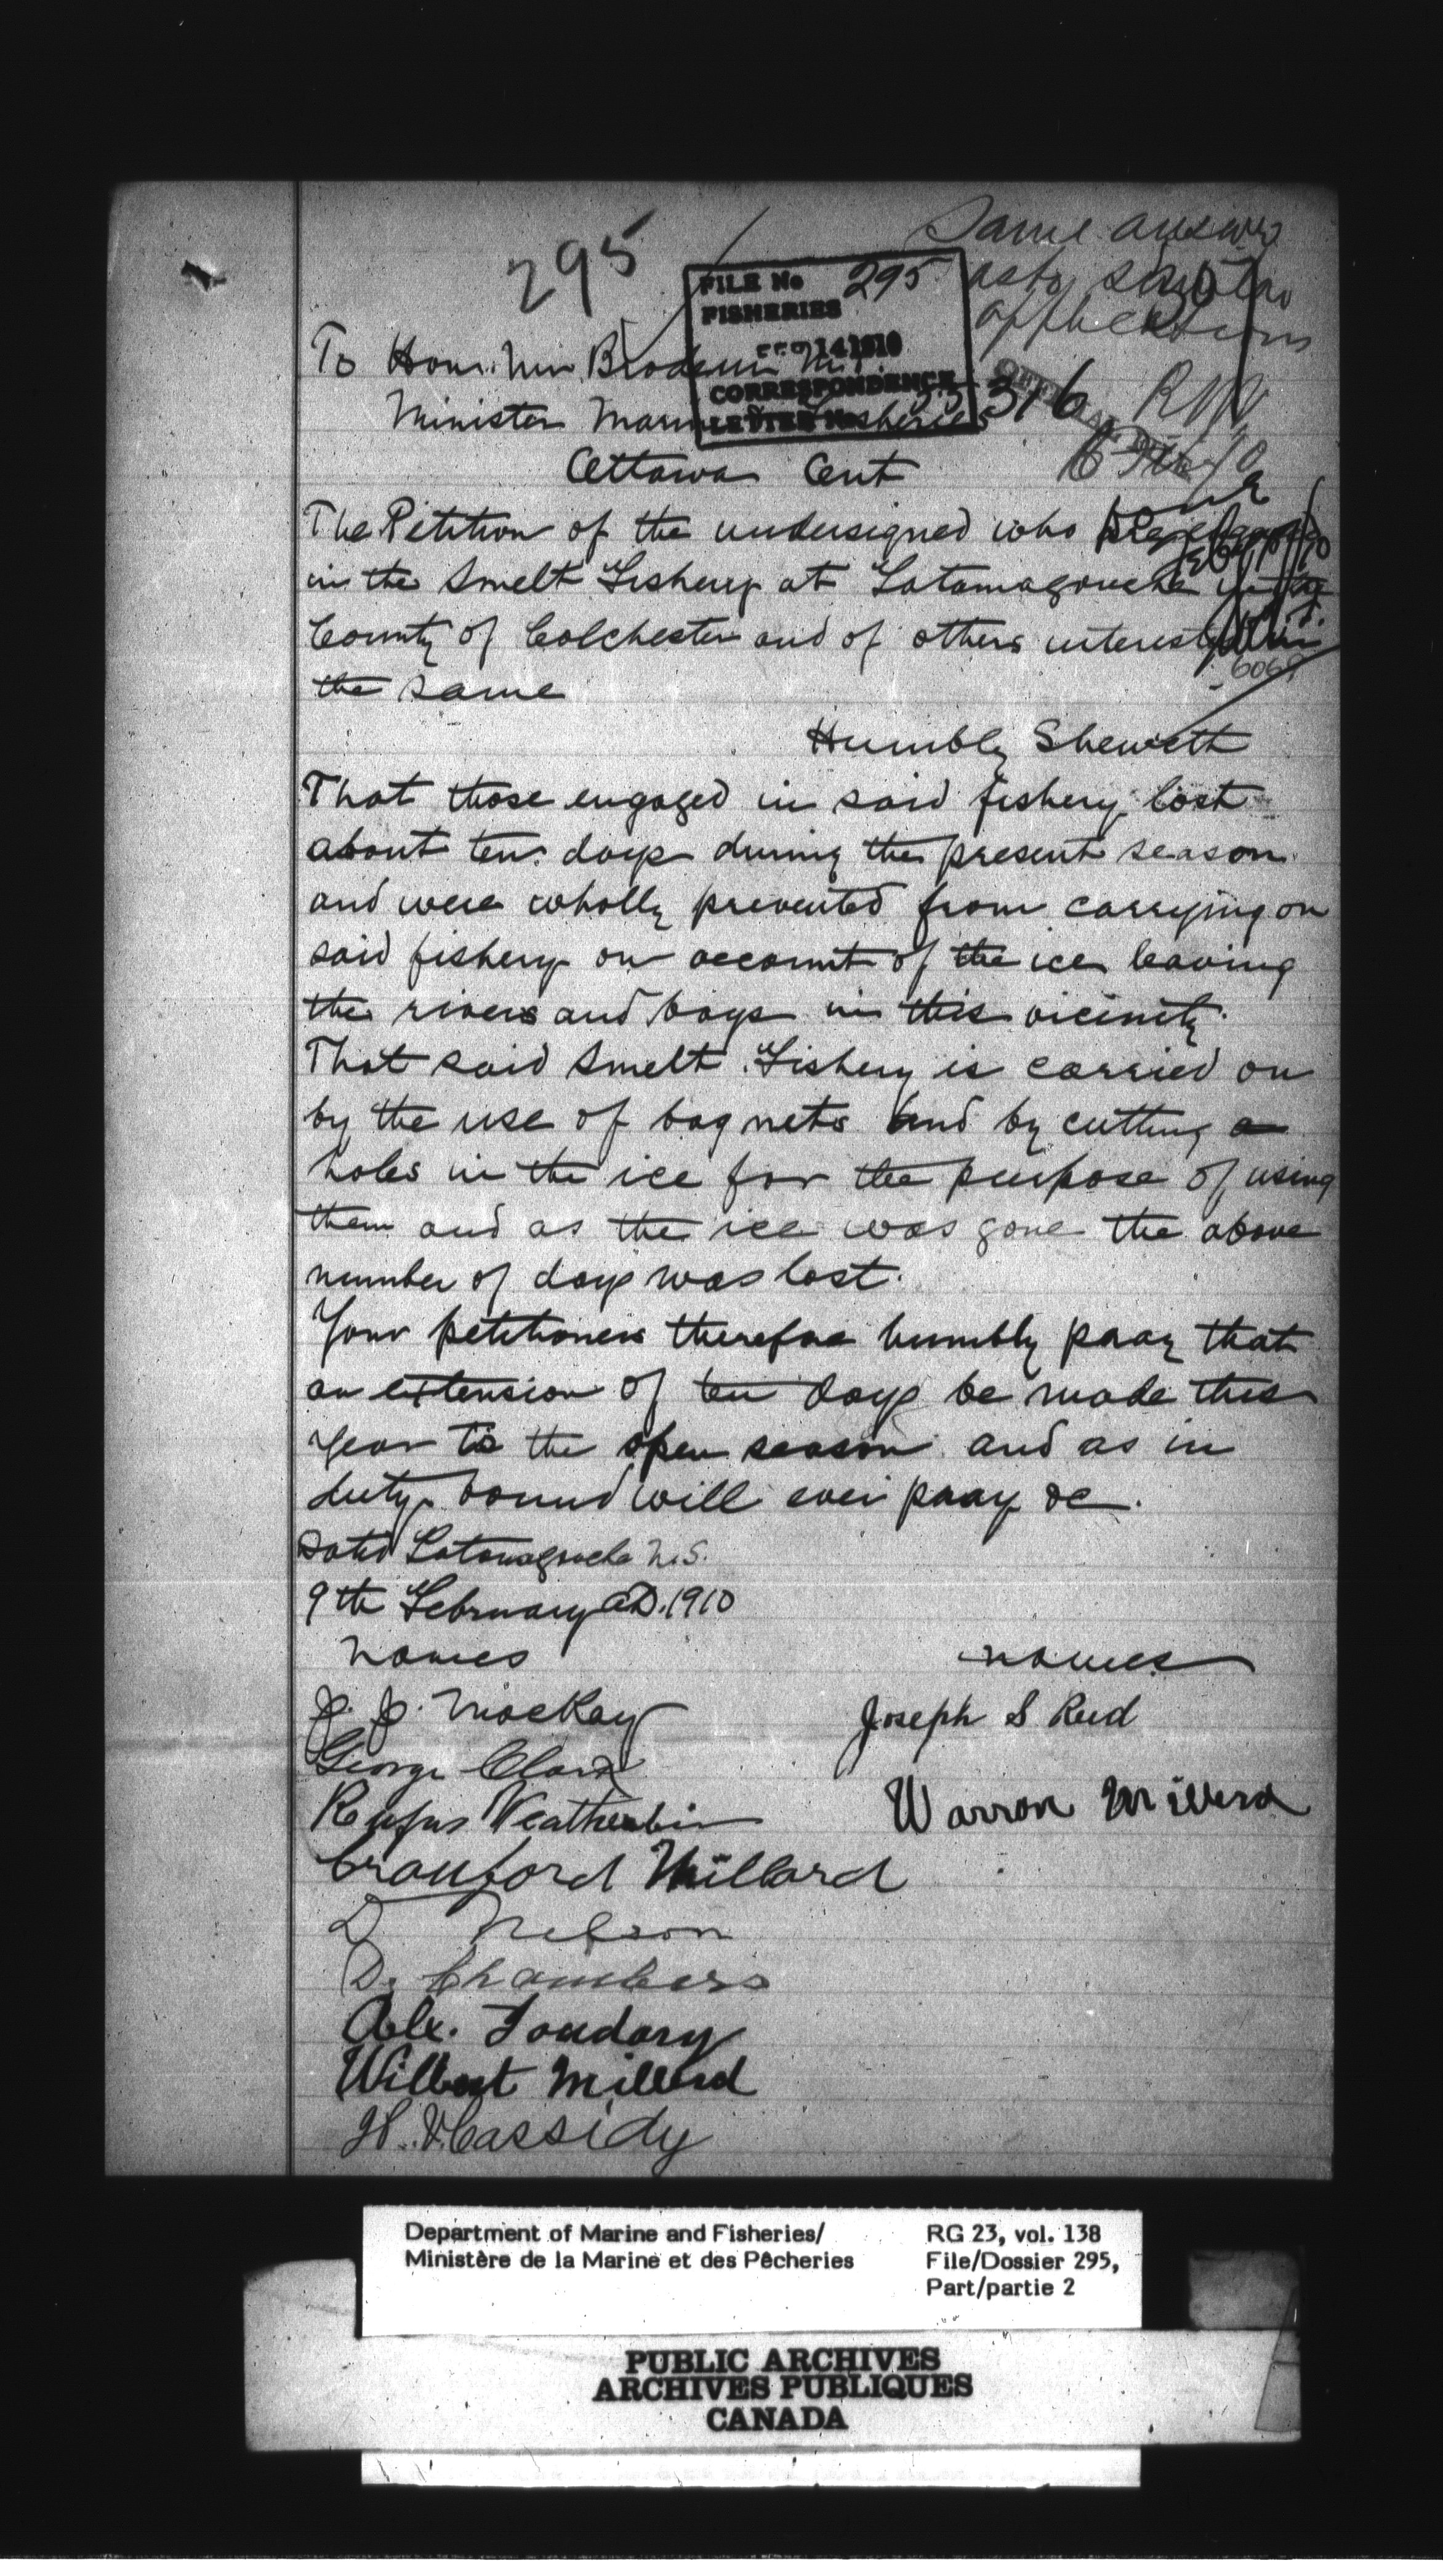 295
Same answer
as to similar
applications
FILE No 295
FISHERIES
FEB 14 1910
CORRESPONDENCE
LETTER No
316
To Hon. Mr. Brodeur M.P.
Minister Marine & Fisheries
Ottawa Ont
The Petition of the undersigned who are engaged
in the Smelt Fishery at Tatamagouche in the
County of Colchester and of others interested in
the same
Humbly Sheweth
That those engaged in said fishery lost
about ten days during the present season
and were wholly prevented from carrying on
said fishery on account of the ice leaving
the rivers and bays in this vicinity.
That said Smelt Fishery is carried on
by the use of bag nets and by cutting
holes in the ice for the purpose of using
them and as the ice was gone the above
number of days was lost.
Your petitioners therefore humbly pray that
an extension of ten days be made this
year to the open season and as in
duty bound will ever pray &c.
Dated Tatamagouche N.S.
9th February A.D. 1910
Names
Names
J. J. MacKay
Joseph S Reid
George Clark
Rufus Weatherbie
Warron Millerd
Crauford Millard
D Nelson
D. Chambers
Alex.
Wilbert Millard
Cassidy
Department of Marine and Fisheries/
Ministère de la Marine et des Pêcheries
RG 23, vol. 138
File/Dossier 295,
Part/partie 2
PUBLIC ARCHIVES
ARCHIVES PUBLIQUES
CANADA